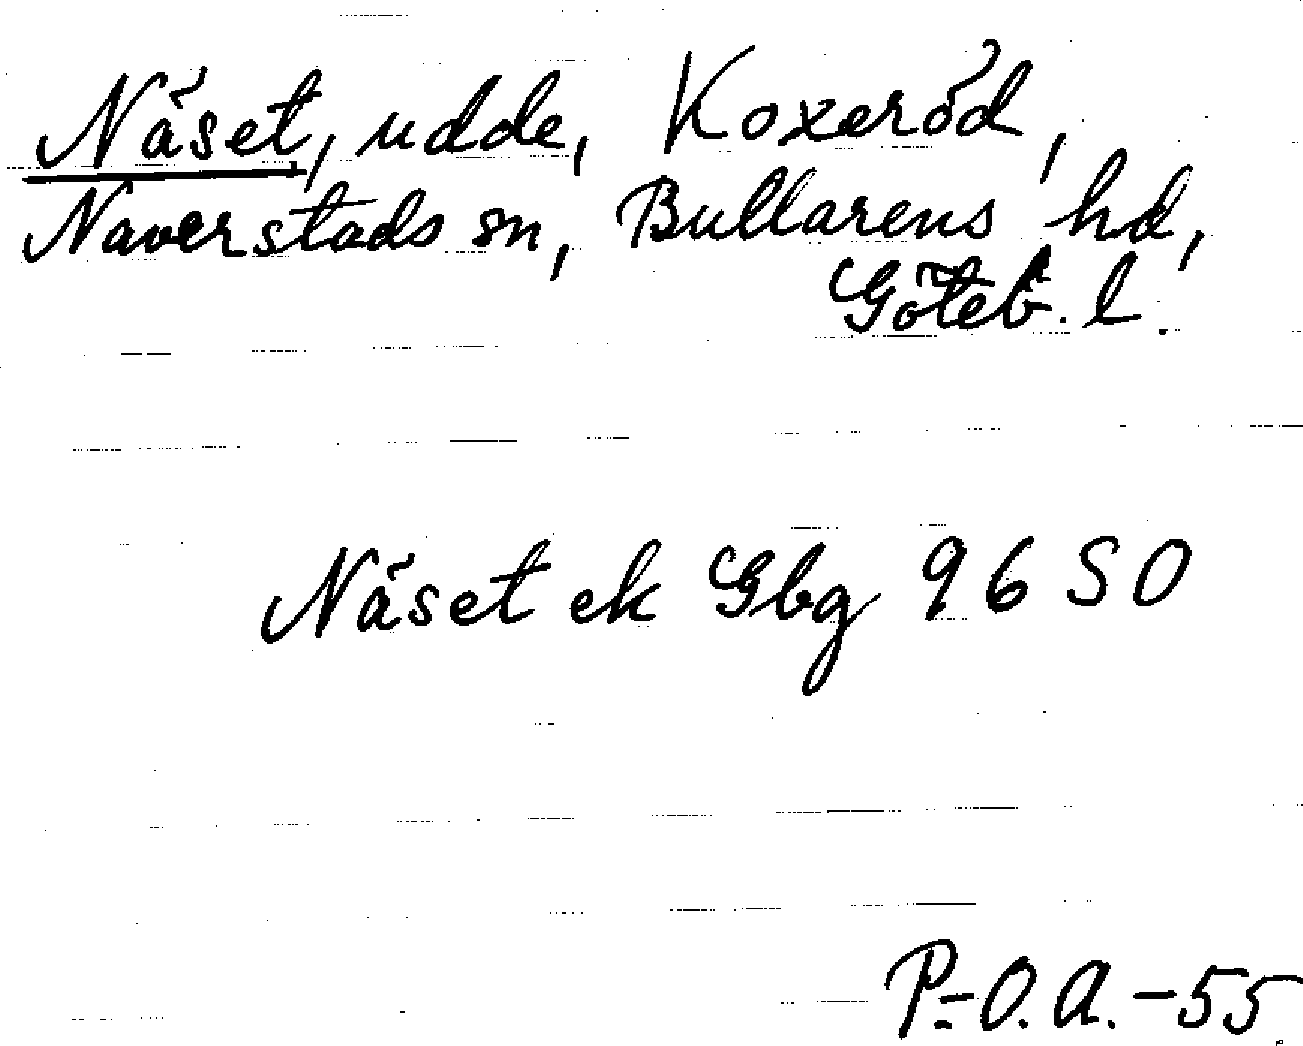 Näset, udde, Koxeröd,
Naverstads sn, Bullarens hd,
Göteb. l.
Näset ek Gbg 96 SO
P-O.A.-55